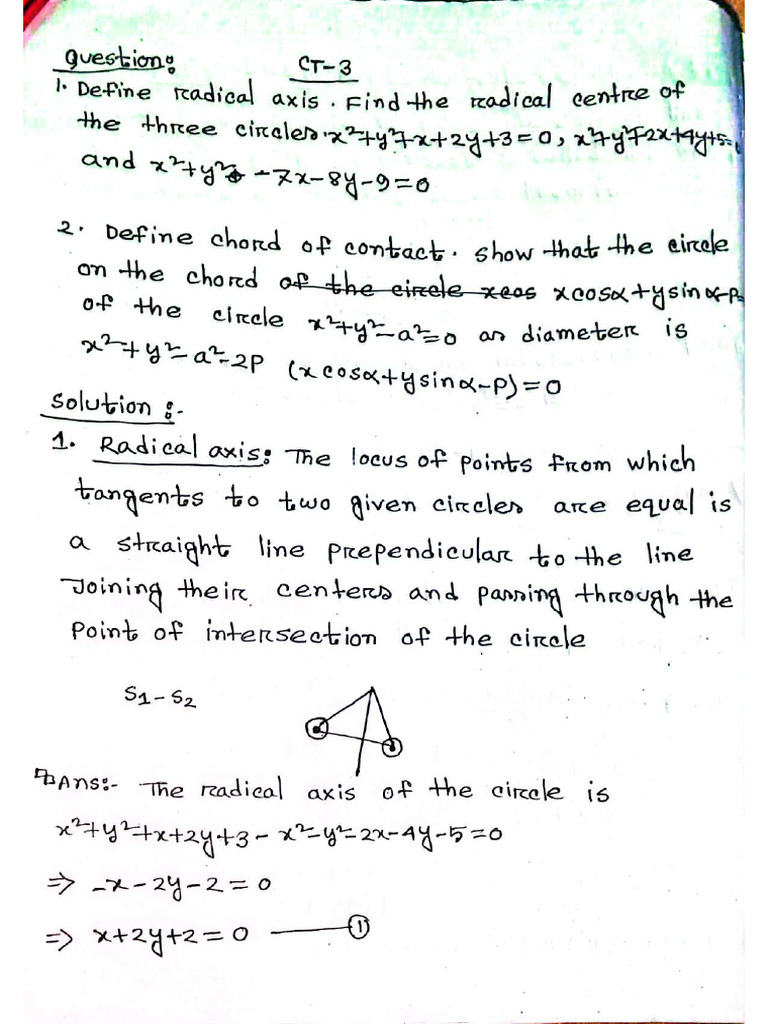 Question:
CT-3
1. Define radical axis. Find the radical centre of
the three circles. x²+y²+x+2y+3=0, x²+y²+2x+4y+5=
and x²+y² -7x-8y-9=0
2. Define chord of contact. show that the circle
on the chord of the circle xcos xcosα+ysinα-P=
of the circle x²+y²-a²=0 as diameter is
x²+y²-a²-2P (xcosα+ysinα-P)=0
Solution:-
1. Radical axis: The locus of points from which
tangents to two given circles are equal is
a straight line prependicular to the line
Joining their centers and passing through the
point of intersection of the circle
S1-S2
Ans:- The radical axis of the circle is
x²+y²+x+2y+3-x²-y²-2x-4y-5=0
⇒ -x-2y-2=0
⇒ x+2y+2=0 ——— ①